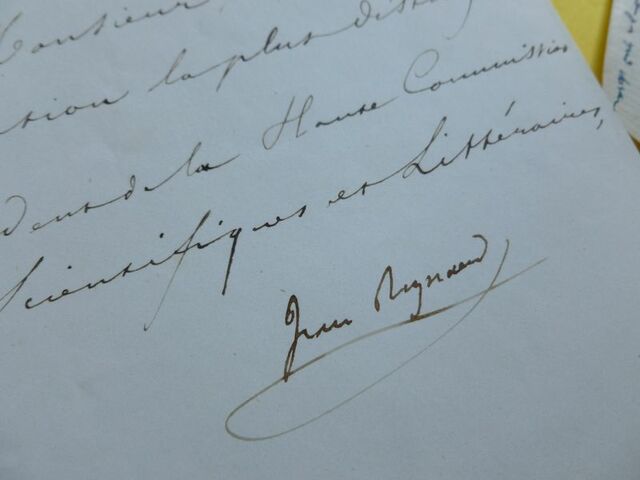 Monsieur,
ation la plus disting
dent de la Haute Commission
Scientifiques et Littéraires,
Jean Reynaud